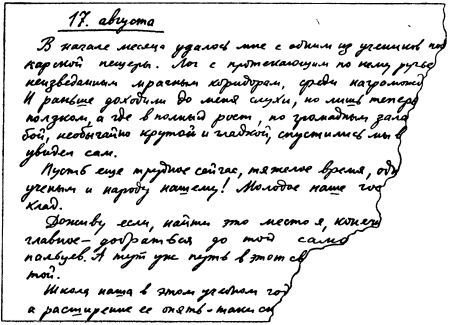 17. августа
В начале месяца удалось мне с одним из учеников по
карской пещеры. Лог с протекающим по нему ручье
неизведанным мрачным коридорам, среди нагроможд
И раньше доходили до меня слухи, но лишь тепер
ползком, а где в полный рост, по громадным зала
бой, необычайно крутой и гладкой, спустились мы в
увидел сам.
Пусть еще трудное сейчас, тяжелое время, одн
ученым и народу нашему! Молодое наше гос
клад.
Доживу если, найти это место я, конеч
главное – добраться до той само
пальцев. А тут уж путь в этот св
той.
Школа наша в этом учебном год
а расширение ее опять-таки св